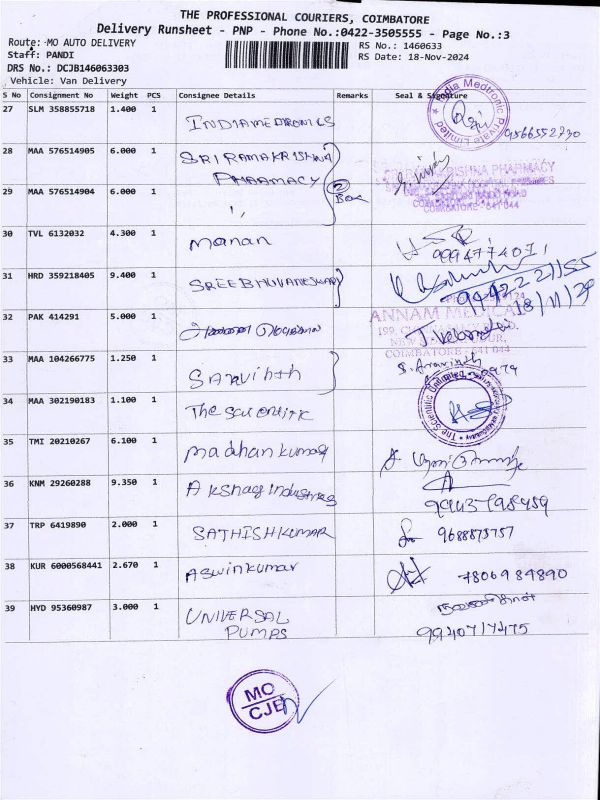 THE PROFESSIONAL COURIERS, COIMBATORE
Delivery Runsheet - PNP - Phone No.:0422-3505555 - Page No.:3
Route: MO AUTO DELIVERY
RS No.: 1460633
Staff: PANDI
RS Date: 18-Nov-2024
DRS No.: DCJB146063303
Vehicle: Van Delivery
S No Consignment No Weight PCS Consignee Details Remarks Seal & Signature
27 SLM 358855718 1.400 1 INDIAMEDTRONICS India Medtronic Private Limited 9566552730
28 MAA 576514905 6.000 1 SRI RAMAKRISHNA PHARMACY KRISHNA PHARMACY
2 Box
29 MAA 576514904 6.000 1 " COIMBATORE - 641 044
30 TVL 6132032 4.300 1 Manan 9994774071
31 HRD 359218405 9.400 1 SREEBHUVANESWARI 18/11/24
32 PAK 414291 5.000 1 ANNAM MEDICAL
COIMBATORE - 641 044
33 MAA 104266775 1.250 1 Sarvihth S. Aravinth
34 MAA 302190183 1.100 1 The Scientific
35 TMI 20210267 6.100 1 Madhan kumar
36 KNM 29260288 9.350 1 Akshag Industries 9943798459
37 TRP 6419890 2.000 1 SATHISHKUMAR 9688873757
38 KUR 6000568441 2.670 1 Aswinkumar 7806984890
39 HYD 95360987 3.000 1 UNIVERSAL PUMPS 9940717475
MO
CJB